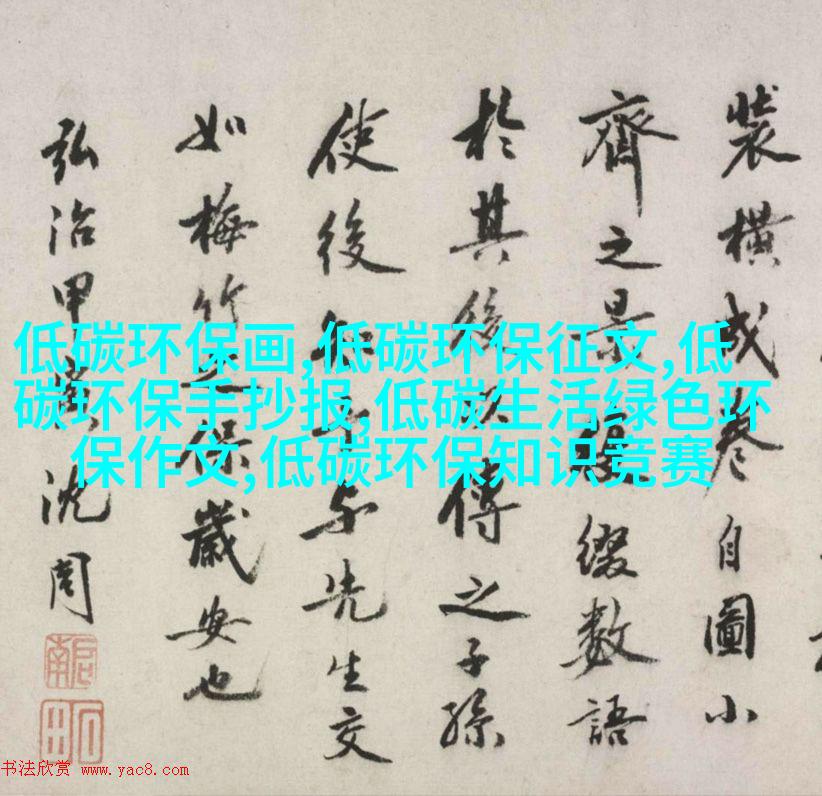 裝橫成卷自圖小
齊之景綴數語
於其後傳之子孫
使後知與先生交
如梅竹之保歲安也
弘治甲寅沈周
啟南
石田
低碳环保画,低碳环保征文,低
碳环保手抄报,低碳生活绿色环
保作文,低碳环保知识竞赛
书法欣赏 www.yac8.com